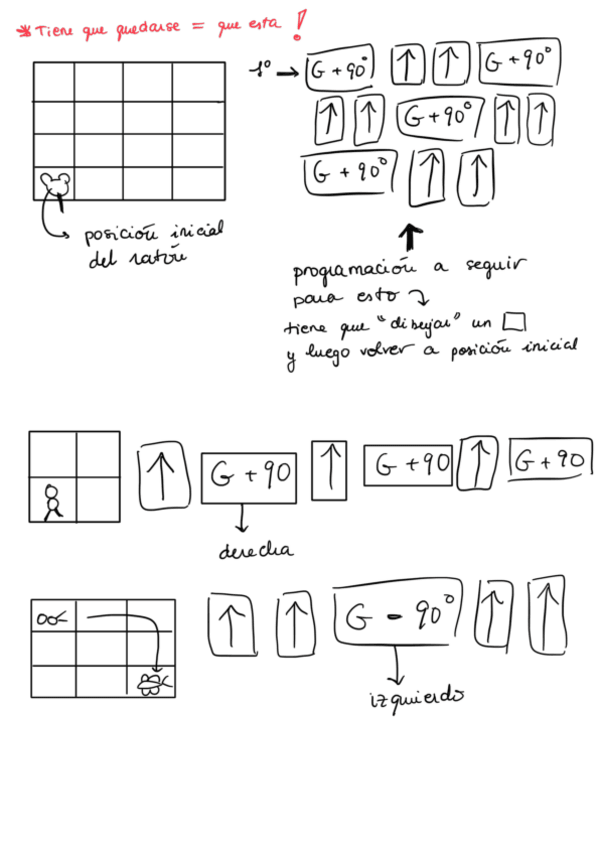 * Tiene que quedarse = que esta !
1º → G + 90° ↑ ↑ G + 90°
↑ ↑ G + 90° ↑ ↑
G + 90° ↑ ↑
posición inicial
del ratón
programación a seguir
para esto
tiene que "dibujar" un □
y luego volver a posición inicial
↑ G + 90 ↑ G + 90 ↑ G + 90
derecha
↑ ↑ G - 90° ↑ ↑
izquierdo